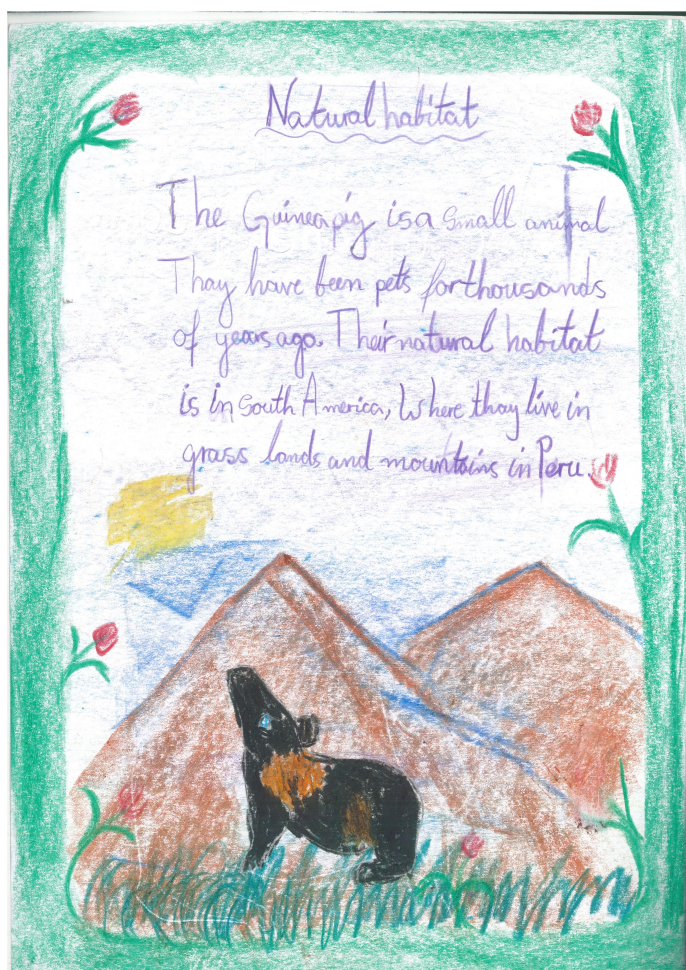 Natural habitat
The Guineapig is a small animal
Thay have been pets for thousands
of years ago. Their natural habitat
is in South America, Where thay live in
grass lands and mountains in Peru.